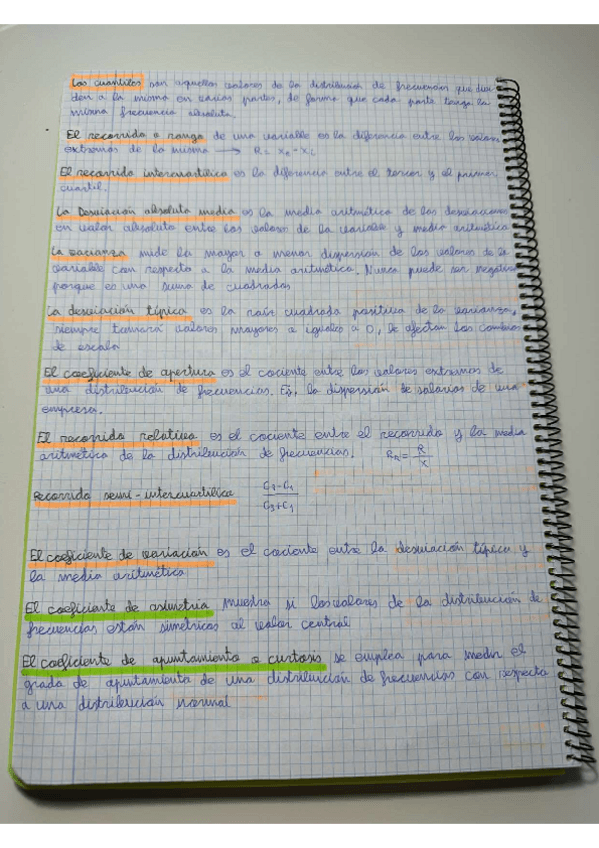 Los cuantiles son aquellos valores de la distribución de frecuencias que divi
den a la misma en varias partes, de forma que cada parte tenga la
misma frecuencia absoluta.
El recorrido o rango de una variable es la diferencia entre los valores
extremos de la misma → R = xn - xi
El recorrido intercuartílico es la diferencia entre el tercer y el primer
cuartil.
La Desviación absoluta media es la media aritmética de las desviaciones
en valor absoluto entre los valores de la variable y media aritmética
La varianza mide la mayor o menor dispersión de los valores de la
variable con respecto a la media aritmética. Nunca puede ser negativa
porque es una suma de cuadrados
La desviación típica es la raíz cuadrada positiva de la varianza,
siempre tomará valores mayores o iguales a 0, le afectan los cambios
de escala
El coeficiente de apertura es el cociente entre los valores extremos de
una distribución de frecuencias. Ej, la dispersión de salarios de una
empresa.
El recorrido relativo es el cociente entre el recorrido y la media
aritmética de la distribución de frecuencias. RR = R/x
Recorrido semi-intercuartílico
C3+C1
El coeficiente de variación es el cociente entre la desviación típica y
la media aritmética
El coeficiente de asimetría muestra si los valores de la distribución de
frecuencias están simétricos al valor central
El coeficiente de apuntamiento o curtosis se emplea para medir el
grado de apuntamiento de una distribución de frecuencias con respecto
a una distribución normal